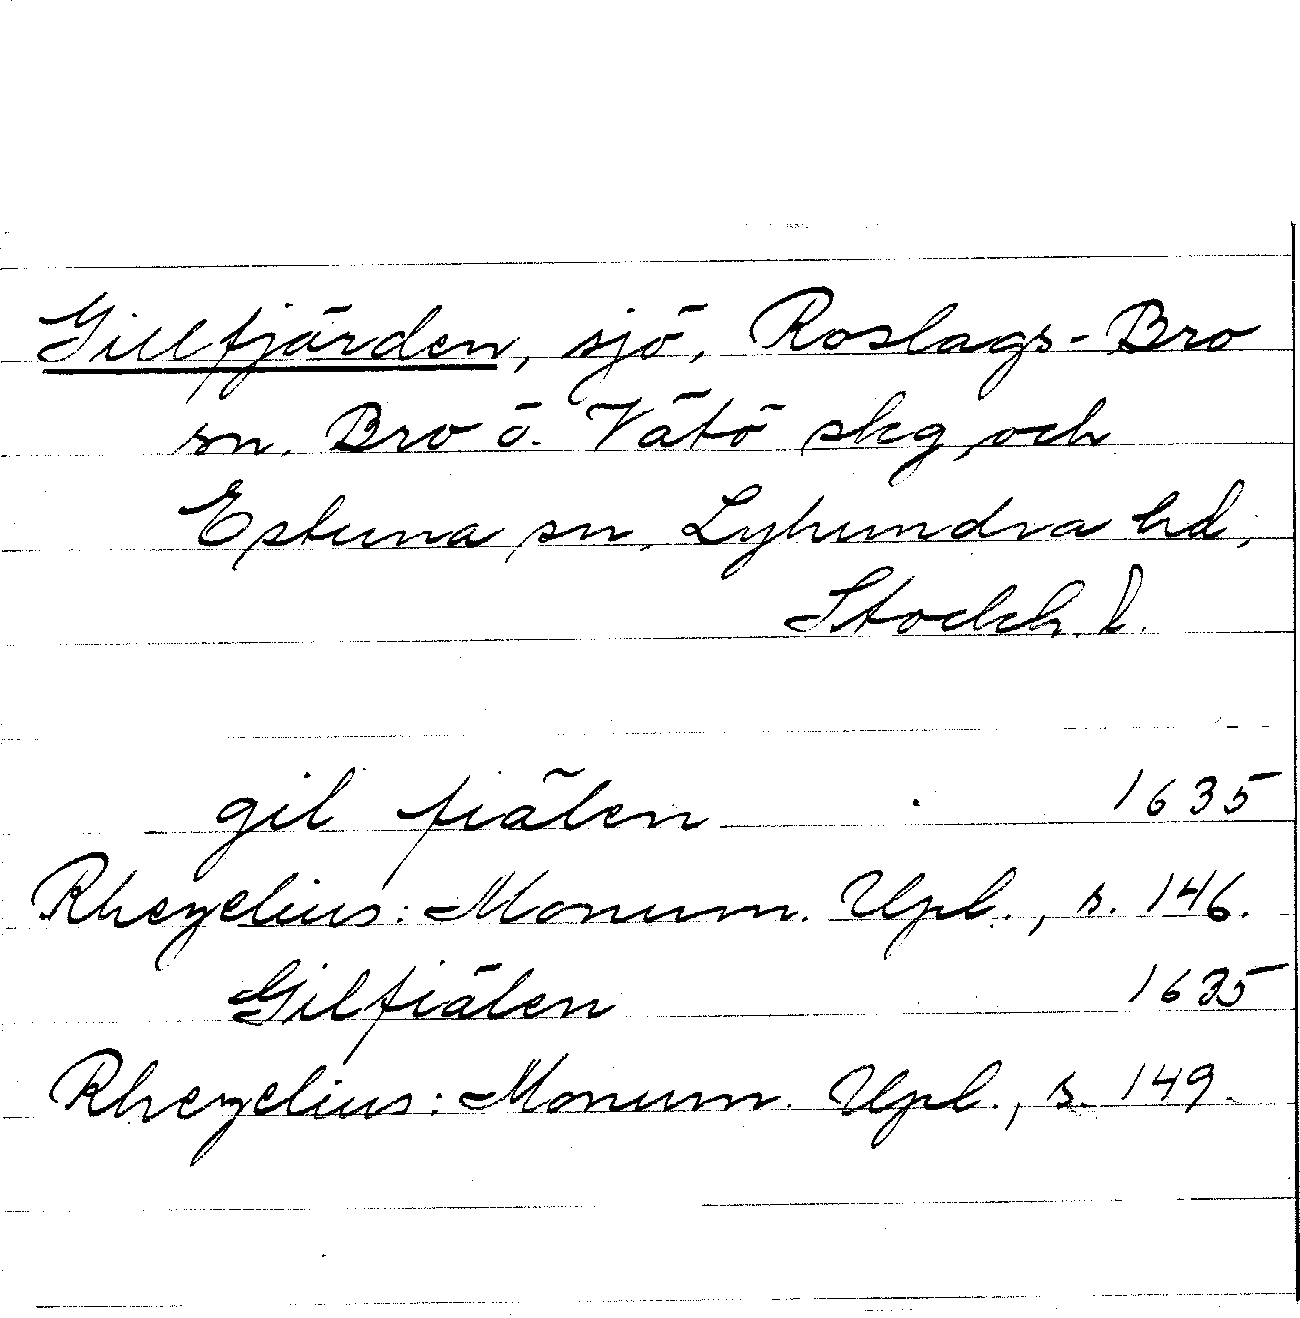 Gillfjärden, sjö, Roslags-Bro
sn. Bro o. Vätö skg och
Estuna sn, Lyhundra hd,
Stockh. l.
gil fiälen 1635
Rhezelius: Monum. Upl., s. 146.
Gilfiälen 1635
Rhezelius: Monum. Upl., s. 149.